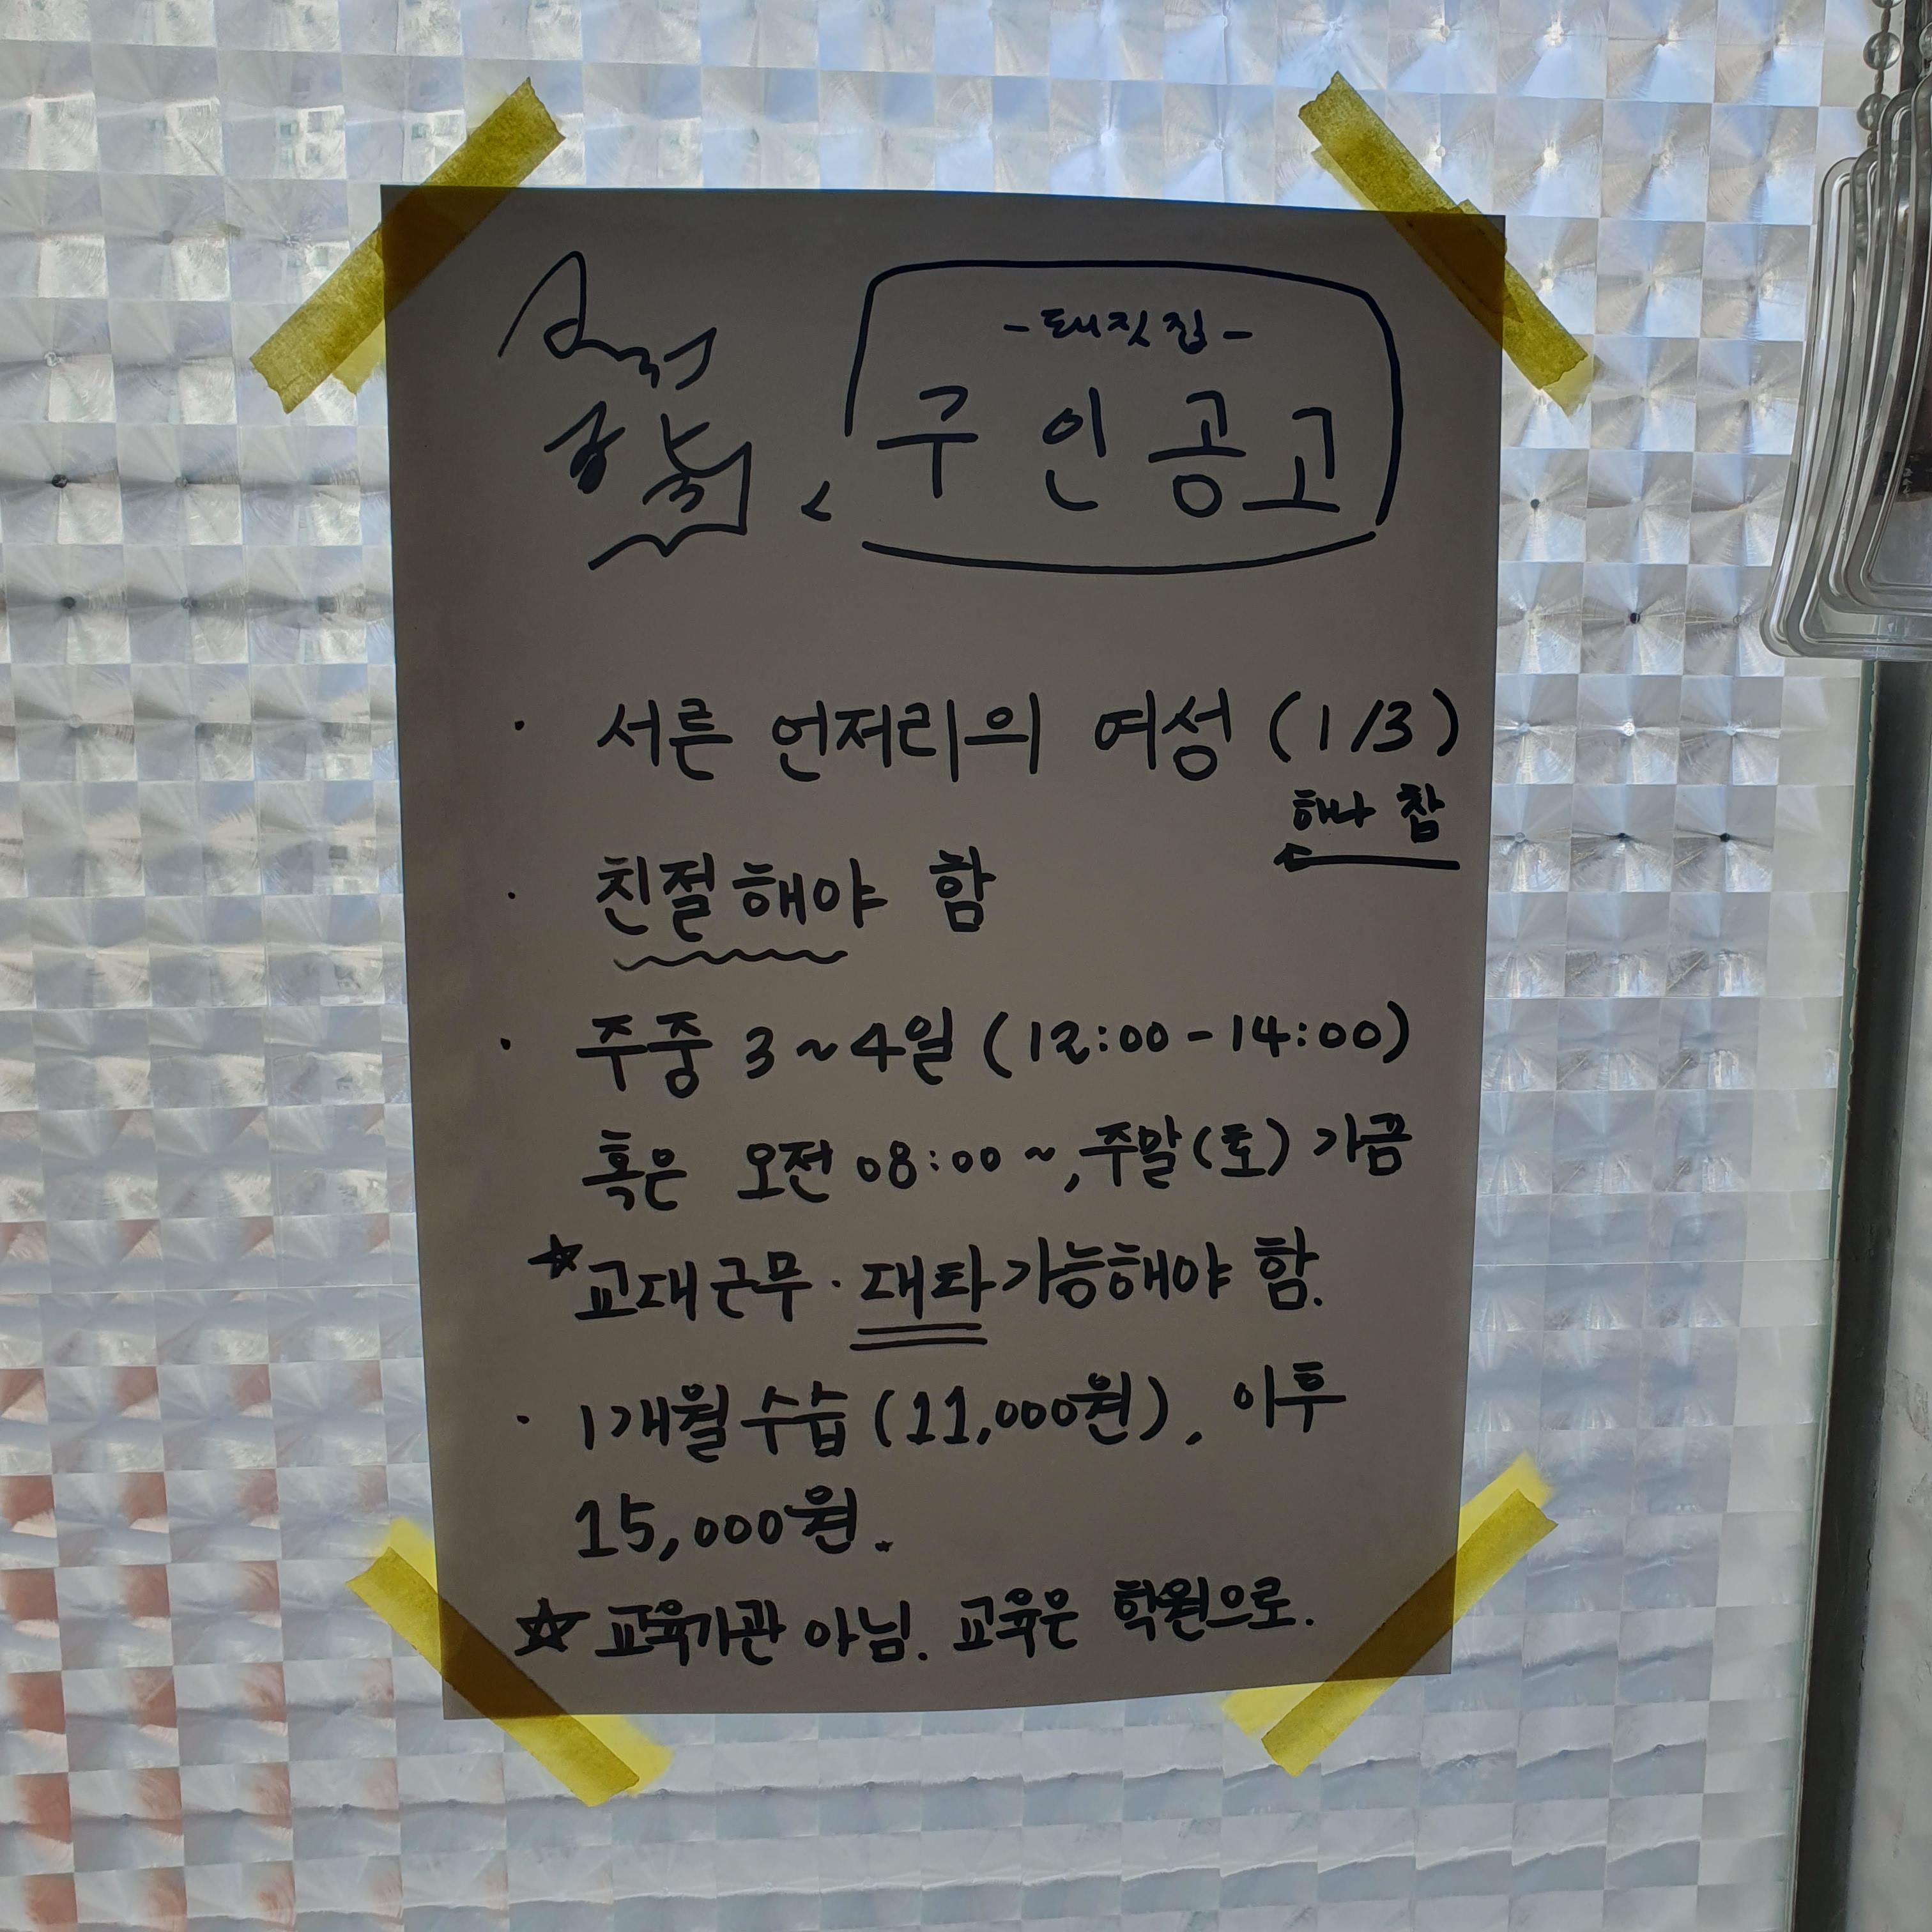 -돼짓집-
구인공고
· 서른 언저리의 여성 (1/3)
하나 참
· 친절해야 함
· 주중 3~4일 (12:00-14:00)
혹은 오전 08:00~, 주말(토) 가끔
☆교대근무·대타가능해야 함.
· 1개월 수습(11,000원), 이후
15,000원.
☆ 교육기관 아님. 교육은 학원으로.